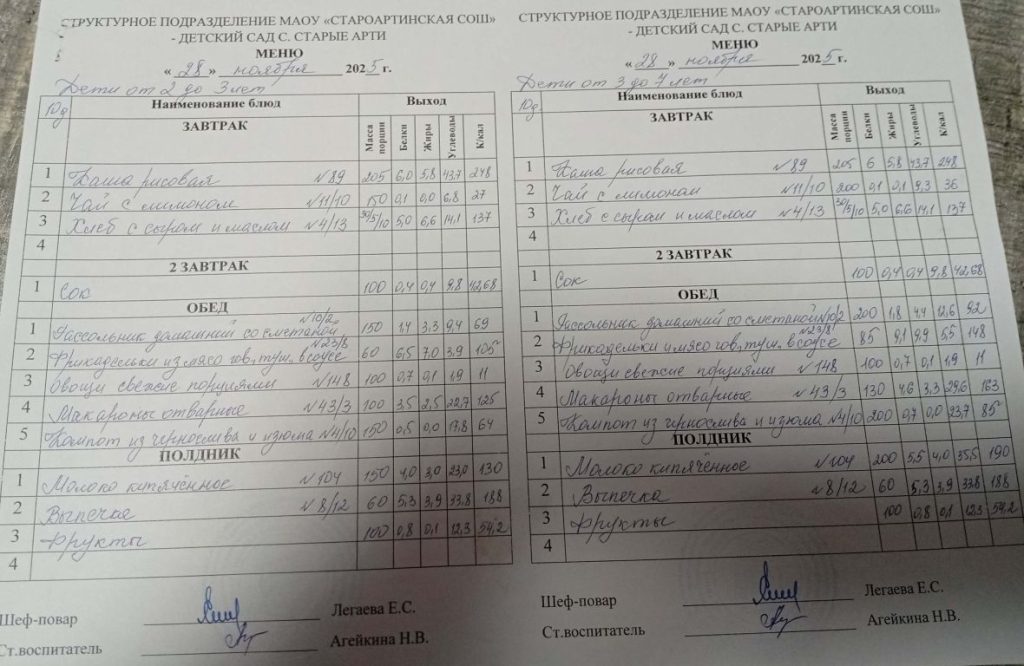 СТРУКТУРНОЕ ПОДРАЗДЕЛЕНИЕ МАОУ «СТАРОАРТИНСКАЯ СОШ»
- ДЕТСКИЙ САД С. СТАРЫЕ АРТИ
МЕНЮ
« 28 » ноября 2025 г.
Дети от 2 до 3 лет
10д Наименование блюд Выход
ЗАВТРАК Масса порции Белки Жиры Углеводы К/кал
1 Каша рисовая №89 205 6,0 5,8 43,7 248
2 Чай с лимоном №11/10 150 0,1 0,0 6,8 27
3 Хлеб с сыром и маслом №4/13 30/5/10 5,0 6,6 14,1 137
4
2 ЗАВТРАК
1 Сок 100 0,4 0,4 9,8 42,68
ОБЕД
1 Рассольник домашний со сметаной №10/2 150 1,4 3,3 9,4 69
2 Фрикадельки из мясо гов, туш. в соусе №23/8 60 6,5 7,0 3,9 105
3 Овощи свежие порциями №148 100 0,7 0,1 1,9 11
4 Макароны отварные №43/3 100 3,5 2,5 22,7 125
5 Компот из чернослива и изюма №4/10 150 0,5 0,0 17,8 64
ПОЛДНИК
1 Молоко кипячённое №104 150 4,0 3,0 23,0 130
2 Выпечка №8/12 60 5,3 3,9 33,8 188
3 Фрукты 100 0,8 0,1 12,3 54,2
4
Шеф-повар Легаева Е.С.
Ст.воспитатель Агейкина Н.В.
СТРУКТУРНОЕ ПОДРАЗДЕЛЕНИЕ МАОУ «СТАРОАРТИНСКАЯ СОШ»
- ДЕТСКИЙ САД С. СТАРЫЕ АРТИ
МЕНЮ
« 28 » ноября 2025 г.
Дети от 3 до 7 лет
10д Наименование блюд Выход
ЗАВТРАК Масса порции Белки Жиры Углеводы К/кал
1 Каша рисовая №89 205 6 5,8 43,7 248
2 Чай с лимоном №11/10 200 0,1 0,1 9,3 36
3 Хлеб с сыром и маслом №4/13 30/5/10 5,0 6,6 14,1 137
4
2 ЗАВТРАК
1 Сок 100 0,4 0,4 9,8 42,68
ОБЕД
1 Рассольник домашний со сметаной №10/2 200 1,8 4,4 12,6 92
2 Фрикадельки мясо гов, туш. в соусе №23/8 85 9,1 9,9 5,5 148
3 Овощи свежие порциями №148 100 0,7 0,1 1,9 11
4 Макароны отварные №43/3 130 4,6 3,3 29,6 163
5 Компот из чернослива и изюма №4/10 200 0,7 0,0 23,7 85
ПОЛДНИК
1 Молоко кипячённое №104 200 5,5 4,0 35,5 190
2 Выпечка №8/12 60 5,3 3,9 33,8 188
3 Фрукты 100 0,8 0,1 12,3 54,2
4
Шеф-повар Легаева Е.С.
Ст.воспитатель Агейкина Н.В.